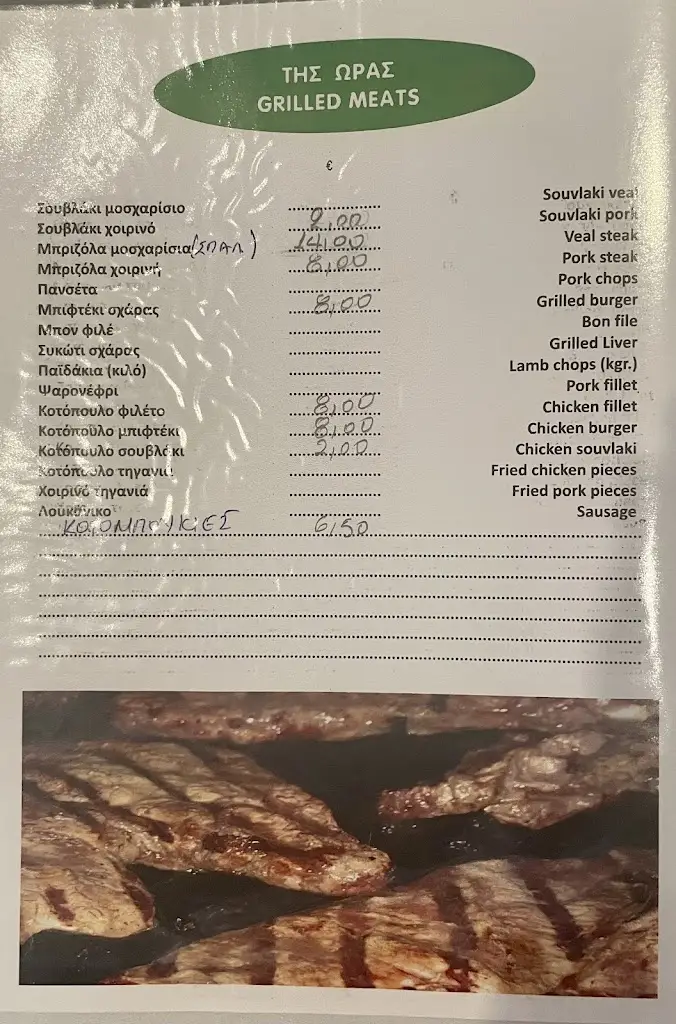 ΤΗΣ ΩΡΑΣ
GRILLED MEATS
€
Σουβλάκι μοσχαρίσιο Souvlaki veal
Σουβλάκι χοιρινό 2,00 Souvlaki pork
Μπριζόλα μοσχαρίσια (ΣΠΑΛ) 14,00 Veal steak
Μπριζόλα χοιρινή 8,00 Pork steak
Πανσέτα Pork chops
Μπιφτέκι σχάρας 8,00 Grilled burger
Μπον φιλέ Bon file
Συκώτι σχάρας Grilled Liver
Παϊδάκια (κιλό) Lamb chops (kgr.)
Ψαρονέφρι Pork fillet
Κοτόπουλο φιλέτο 8,00 Chicken fillet
Κοτόπουλο μπιφτέκι 8,00 Chicken burger
Κοτόπουλο σουβλάκι 2,00 Chicken souvlaki
Κοτόπουλο τηγανιά Fried chicken pieces
Χοιρινό τηγανιά Fried pork pieces
Λουκάνικο Sausage
6,50